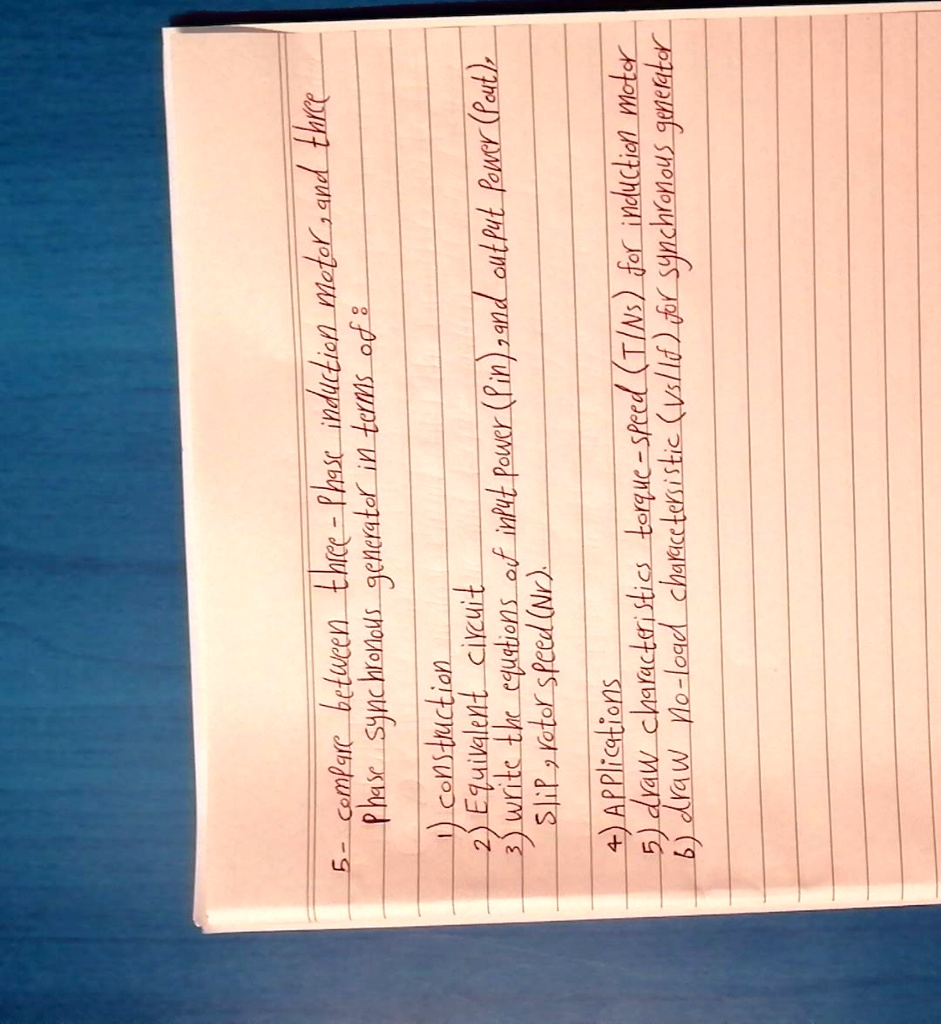 5- compare between three-Phase induction motor, and three
Phase synchronous generator in terms of:
1) construction
2) Equivalent circuit
3) write the equations of input Power (Pin), and output Power (Pout),
Slip, rotor speed (Nr).
4) Applications
5) draw characteristics torque-speed (T/Ns) for induction motor
6) draw no-load characetersistic (Vs/If) for synchronous generator